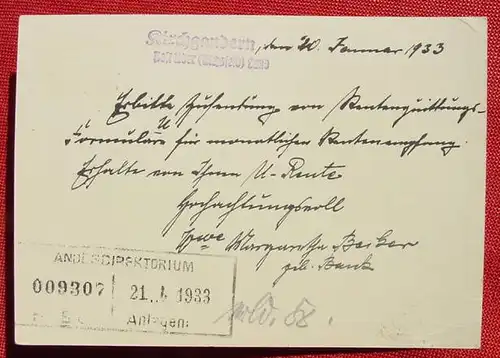 Kirchgandern, den 20. Januar 1933
Post über (Eichsfeld) Land
Erbitte Zusendung von Rentenquittungs-
Formulare U für monatlichen Rentenempfang.
Erhalte von Ihnen U-Rente
Hochachtungsvoll
Wwe Margaretha Becker
geb. Bank
ANDESDIREKTORIUM
009307
21. 1933
Anlagen: